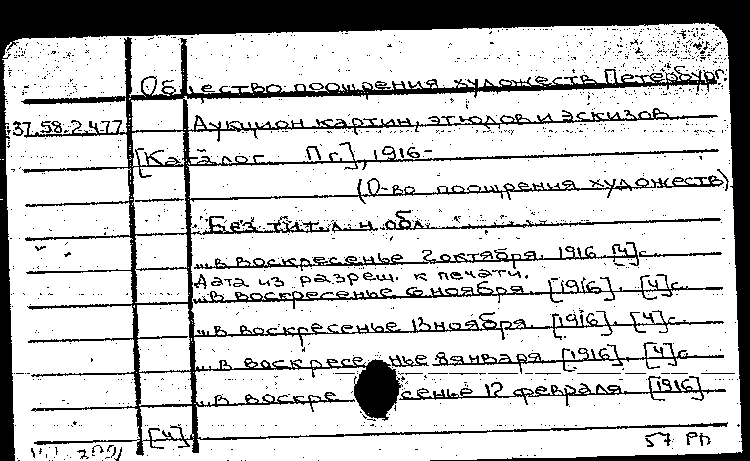 Общество поощрения художеств Петербург.
37.58.2.477 Аукцион картин, этюдов и эскизов
[Каталог Пг.], 1916-
(О-во поощрения художеств)
Без тит. л. и обл.
...в воскресенье 2 октября. 1916 [4]с.
Дата из разреш. к печати.
...в воскресенье 6 ноября. [1916]. [4]с.
...в воскресенье 13 ноября. [1916]. [4]с.
...в воскресенье 8 января. [1916]. [4]с
...в воскресенье 12 февраля. [1916]
[4]
57 РП